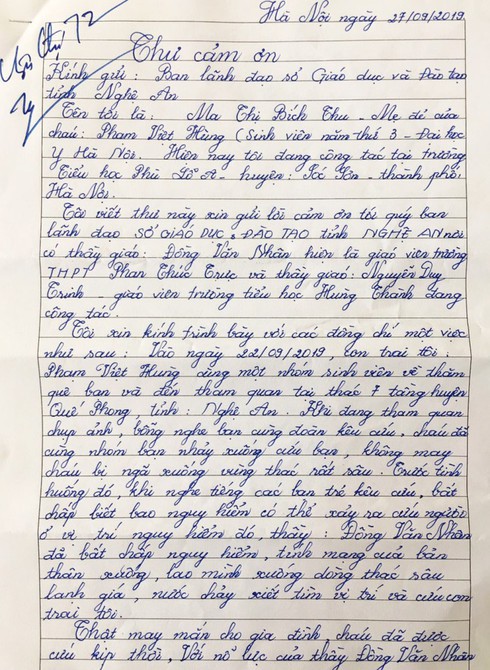 Hà Nội ngày 27/09/2019
Thư cảm ơn
Kính gửi: Ban lãnh đạo sở Giáo dục và Đào tạo
tỉnh Nghệ An
Tên tôi là: Ma Thị Bích Thu - Mẹ đẻ của
cháu: Phạm Việt Hùng (Sinh viên năm thứ 3 - Đại học
Y Hà Nội. Hiện nay tôi đang công tác tại trường
Tiểu học Phù Lỗ A - huyện: Sóc Sơn - thành phố
Hà Nội.
Tôi viết thư này xin gửi lời cảm ơn tới quý ban
lãnh đạo SỞ GIÁO DỤC & ĐÀO TẠO tỉnh NGHỆ AN nơi
có thầy giáo: Đồng Văn Nhân hiện là giáo viên trường
THPT Phan Thúc Trực và thầy giáo: Nguyễn Duy
Trinh - giáo viên trường tiểu học Hưng Thành đang
công tác.
Tôi xin kính trình bày với các đồng chí một việc
như sau: Vào ngày 22/09/2019, con trai tôi:
Phạm Việt Hùng cùng một nhóm sinh viên về thăm
quê bạn và đến tham quan tại thác 7 tầng huyện
Quế Phong, tỉnh: Nghệ An. Khi đang tham quan
chụp ảnh, bỗng nghe bạn cùng đoàn kêu cứu, cháu đã
cùng nhóm bạn nhảy xuống cứu bạn, không may
cháu bị ngã xuống vùng thác rất sâu. Trước tình
huống đó, khi nghe tiếng các bạn trẻ kêu cứu, bất
chấp biết bao nguy hiểm có thể xảy ra cứu người
ở vị trí nguy hiểm đó, thầy: Đồng Văn Nhân
đã bất chấp nguy hiểm, tính mạng của bản
thân xuống, lao mình xuống dòng thác sâu
lạnh giá, nước chảy xiết tìm vị trí và cứu con
trai tôi.
Thật may mắn cho gia đình, cháu đã được
cứu kịp thời, Với nỗ lực của thầy Đồng Văn Nhân